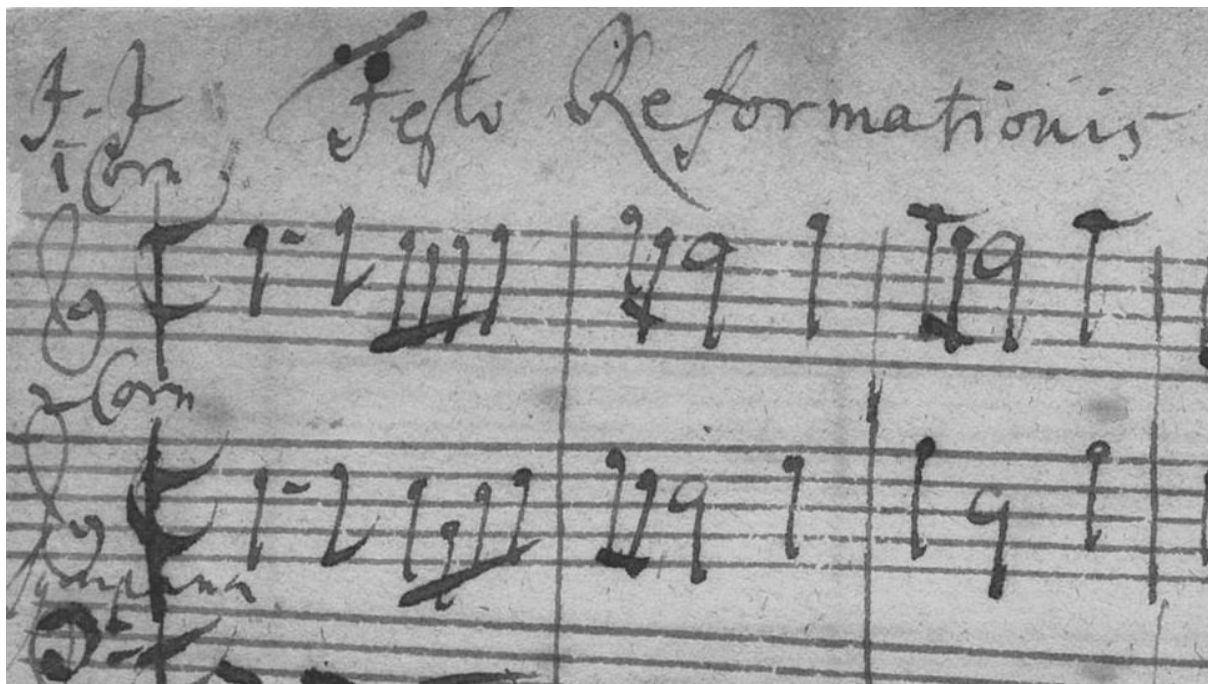 J. J. Festo Reformationis
1 Corn
2 Corn
Tympana